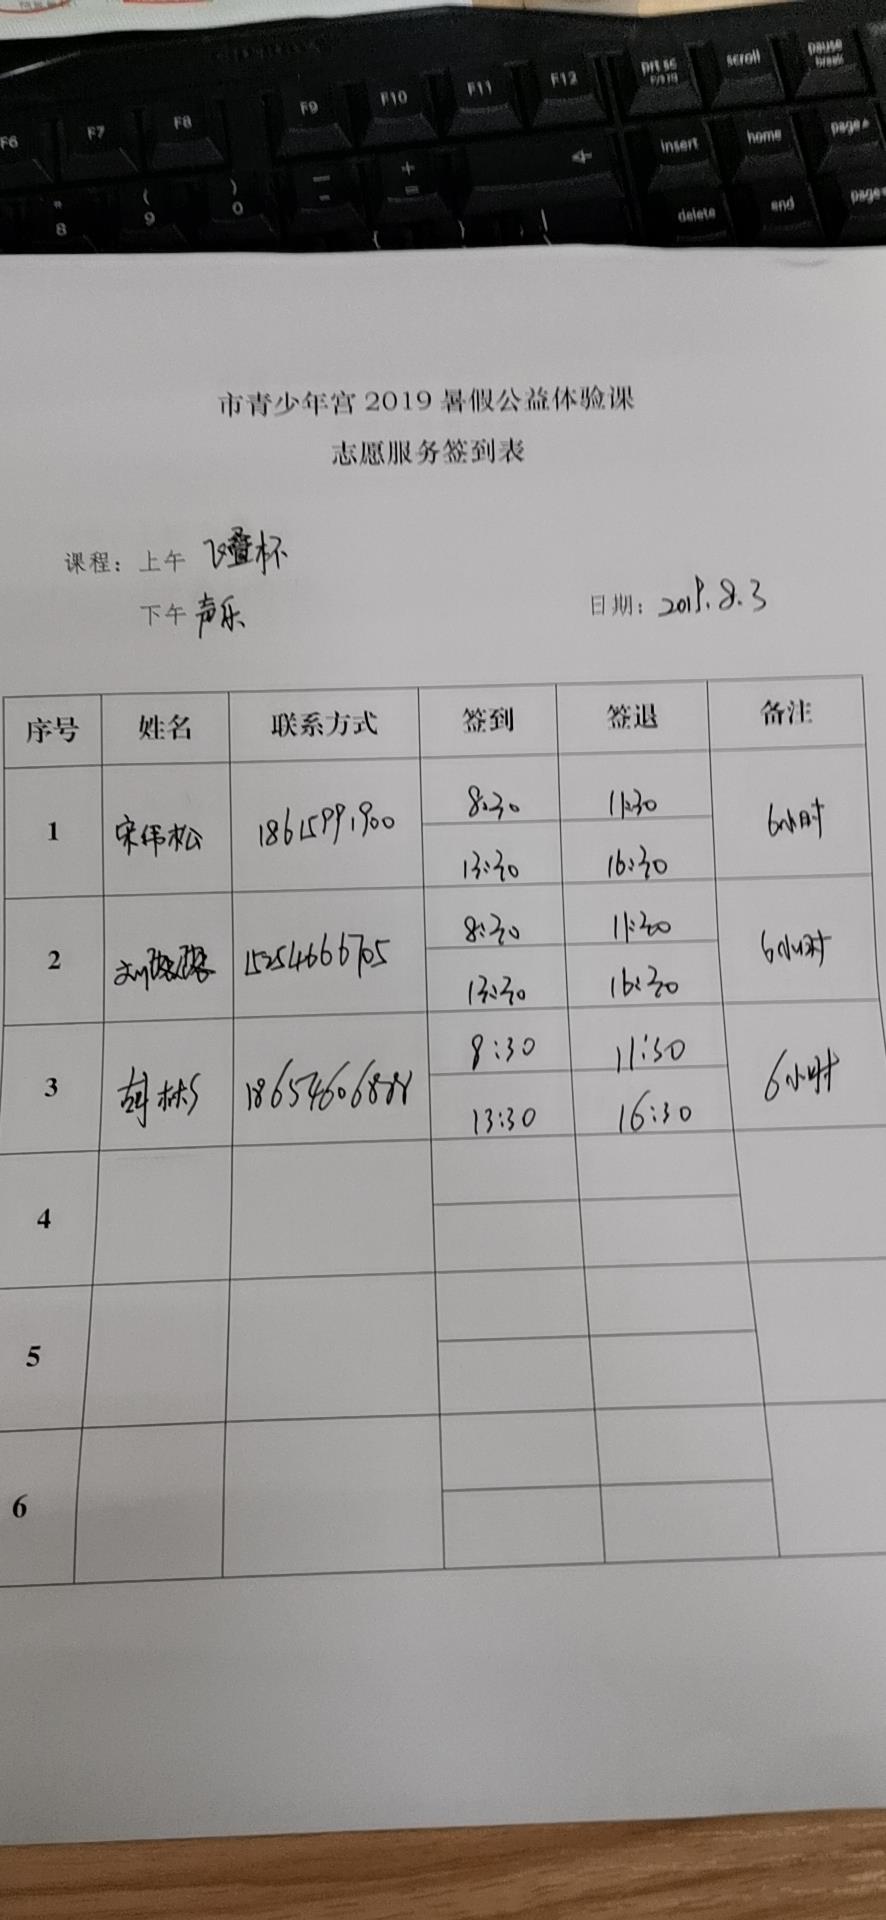 F6 F7 F8 F9 F10 F11 F12 prt sc scroll pause
break
insert home page
8 ( 9 ) 0 — - + = delete end page
{ } |
市青少年宫 2019 暑假公益体验课
志愿服务签到表
课程：上午 飞叠杯
下午 声乐
日期：2019.8.3
序号 姓名 联系方式 签到 签退 备注
1 宋伟松 18615991900 8:30 11:30 6小时
13:30 16:30
2 15254666705 8:30 11:30 6小时
13:30 16:30
3 18654606888 8:30 11:30 6小时
13:30 16:30
4
5
6